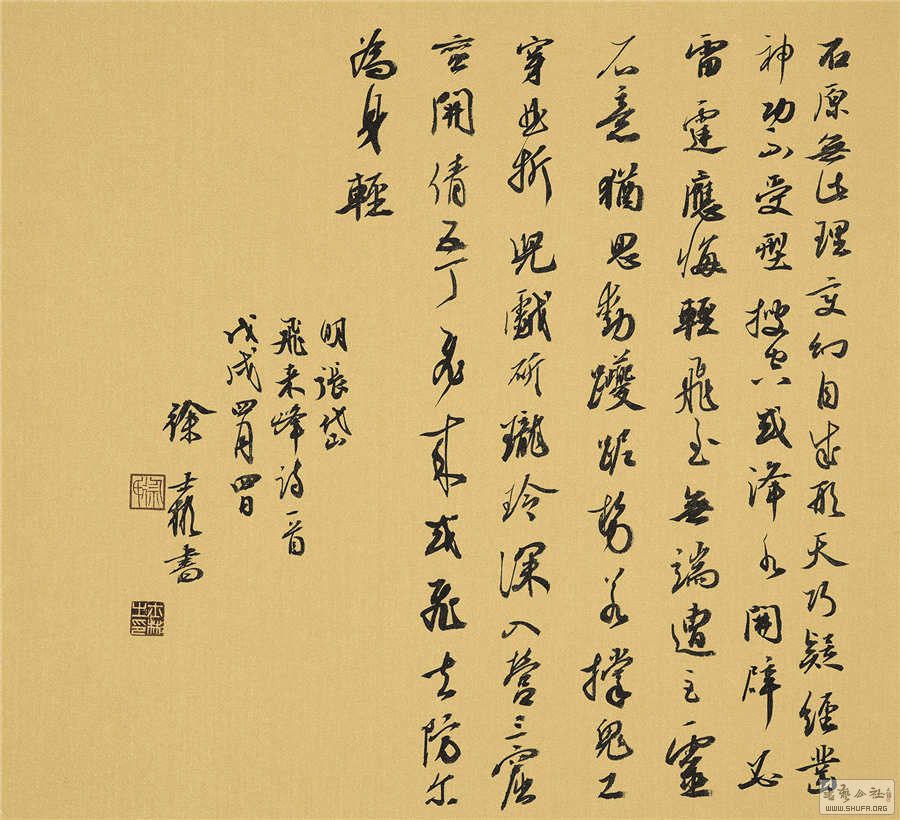 石原無此理變幻自成形天巧疑經鑿
神功不受型搜空或洚水開辟必
雷霆應悔輕飛至無端遭巨靈
石意猶思動躨跜勢若撐鬼工
穿曲折兒戲斫瓏玲深入營三窟
蠻開倩五丁飛來或飛去防爾
為身輕
明張岱
飛來峰詩一首
戊戌四月四日
徐書
書藝公社
WWW.SHUFA.ORG